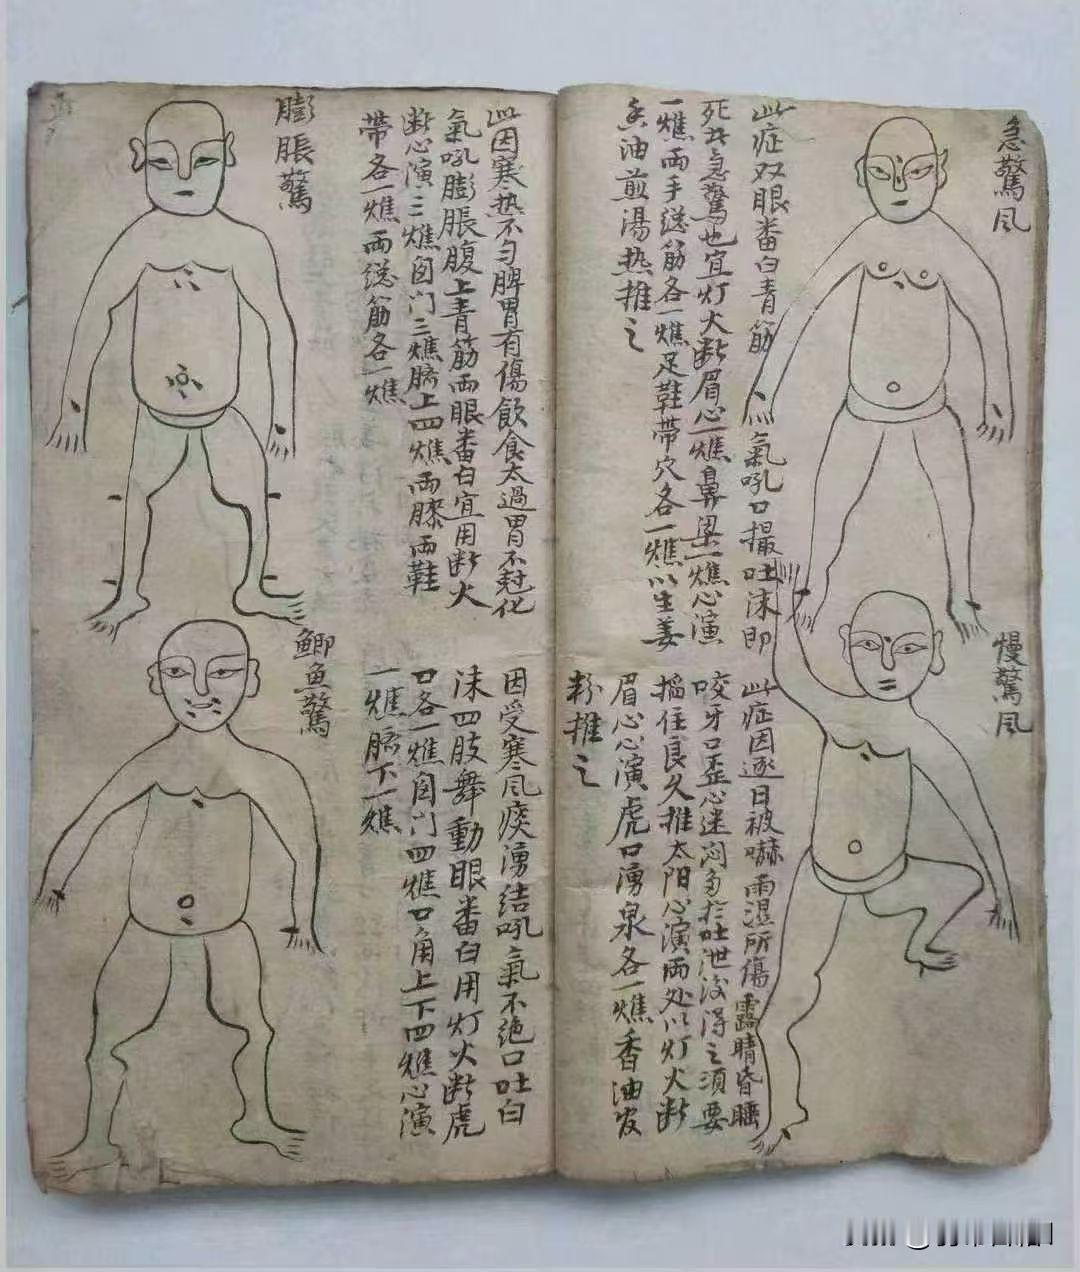 急驚風
此症双眼番白青筋灬氣吼口撮吐沫即
死此急驚也宜灯火断眉心一燋鼻梁一燋心演
一燋两手総筋各一燋足鞋帶穴各一燋以生姜
香油煎湯热推之
慢驚風
此症因逐日被嚇雨濕所傷露睛昏睡
咬牙口歪心迷闷多於吐泄後得之須要
掐住良久推太阳心演两处以灯火断
眉心心演虎口湧泉各一燋香油发
粉推之
膨脹驚
此因寒热不匀脾胃有傷飲食太過胃不尅化
氣吼膨脹腹上青筋两眼番白宜用断火
断心演三燋囟门三燋臍上四燋两膝两鞋
帶各一燋两総筋各一燋
鯽魚驚
因受寒風痰湧結吼氣不绝口吐白
沫四肢舞動眼番白用灯火断虎
口各一燋囟门四燋口角上下四燋心演
一燋臍下一燋